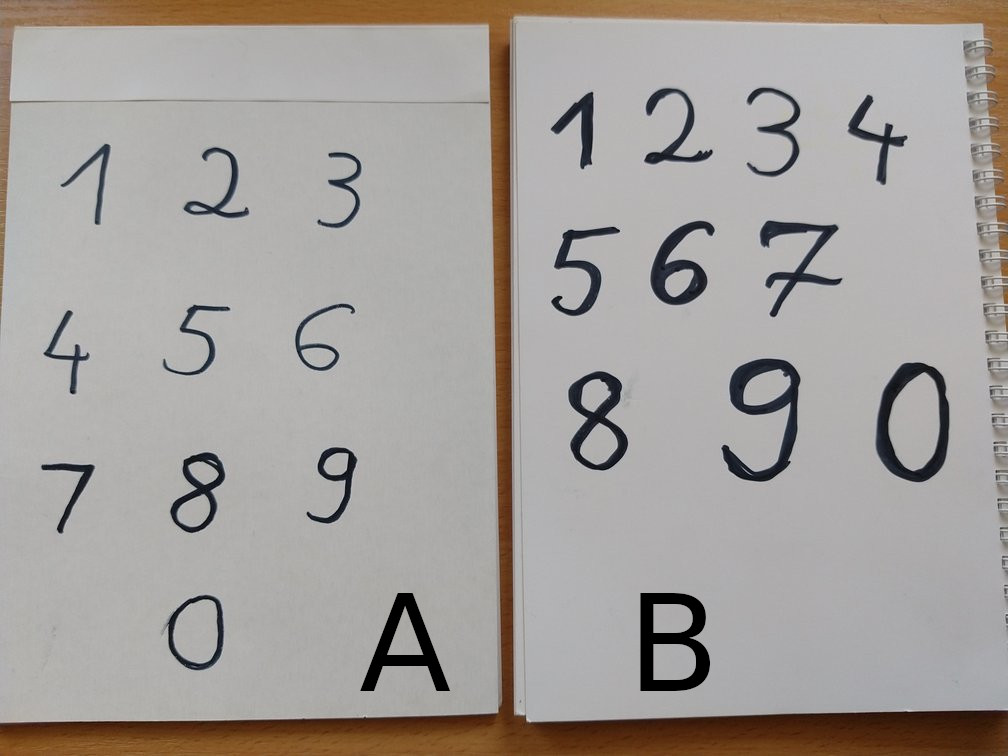 1 2 3
4 5 6
7 8 9
0
A
1 2 3 4
5 6 7
8 9 0
B